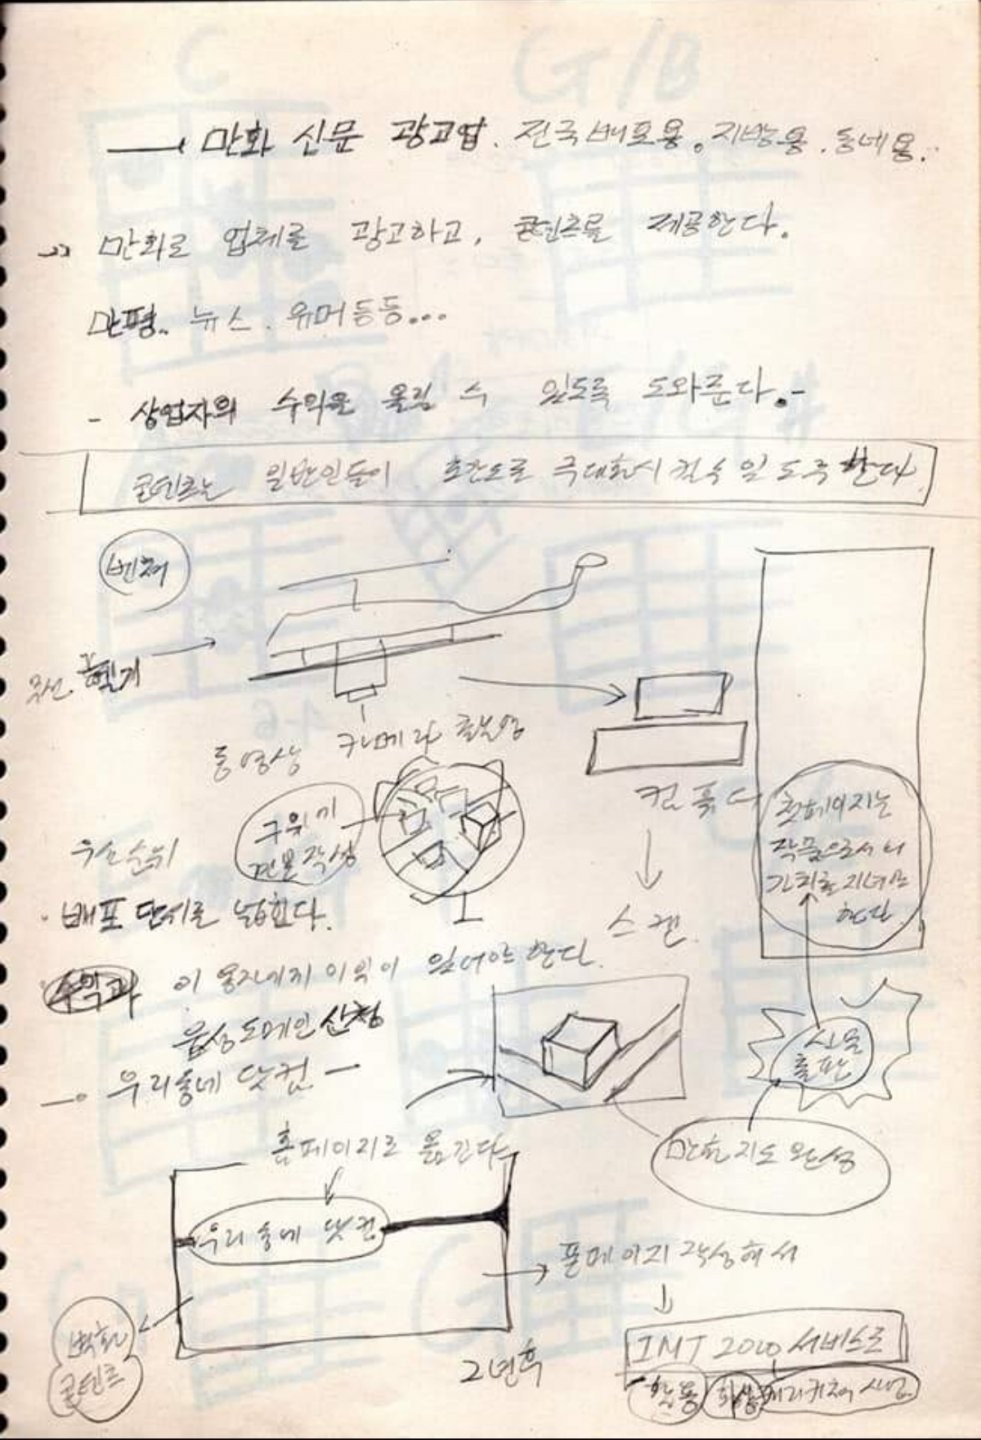 만화 신문 광고업. 전국배포용. 지방용. 동네용..
만화로 업체를 광고하고, 콘텐츠를 제공한다.
만평.. 뉴스. 유머등등...
- 상업자의 수익을 올릴 수 있도록 도와준다. -
콘텐츠는 일반인들이 극대화시킬수 있도록 한다
벤쳐
무선 헬기
동영상 카메라 촬영
컴퓨터
스캔
구위기 견본작성
첫페이지는
작품으로서의
가치를 지녀야
한다.
우선순위
· 배포 단계로 넓힌다.
수익과 이용자에게 이익이 있어야 한다.
음성도메인 신청
우리동네 닷컴 -
신문
출판
만화지도완성
홈페이지로 옮긴다
우리동네 닷컴
풀페이지 작성해서
벽화
콘텐츠
2년후
IMT 2000 서비스로
활용
화상
캐리커쳐